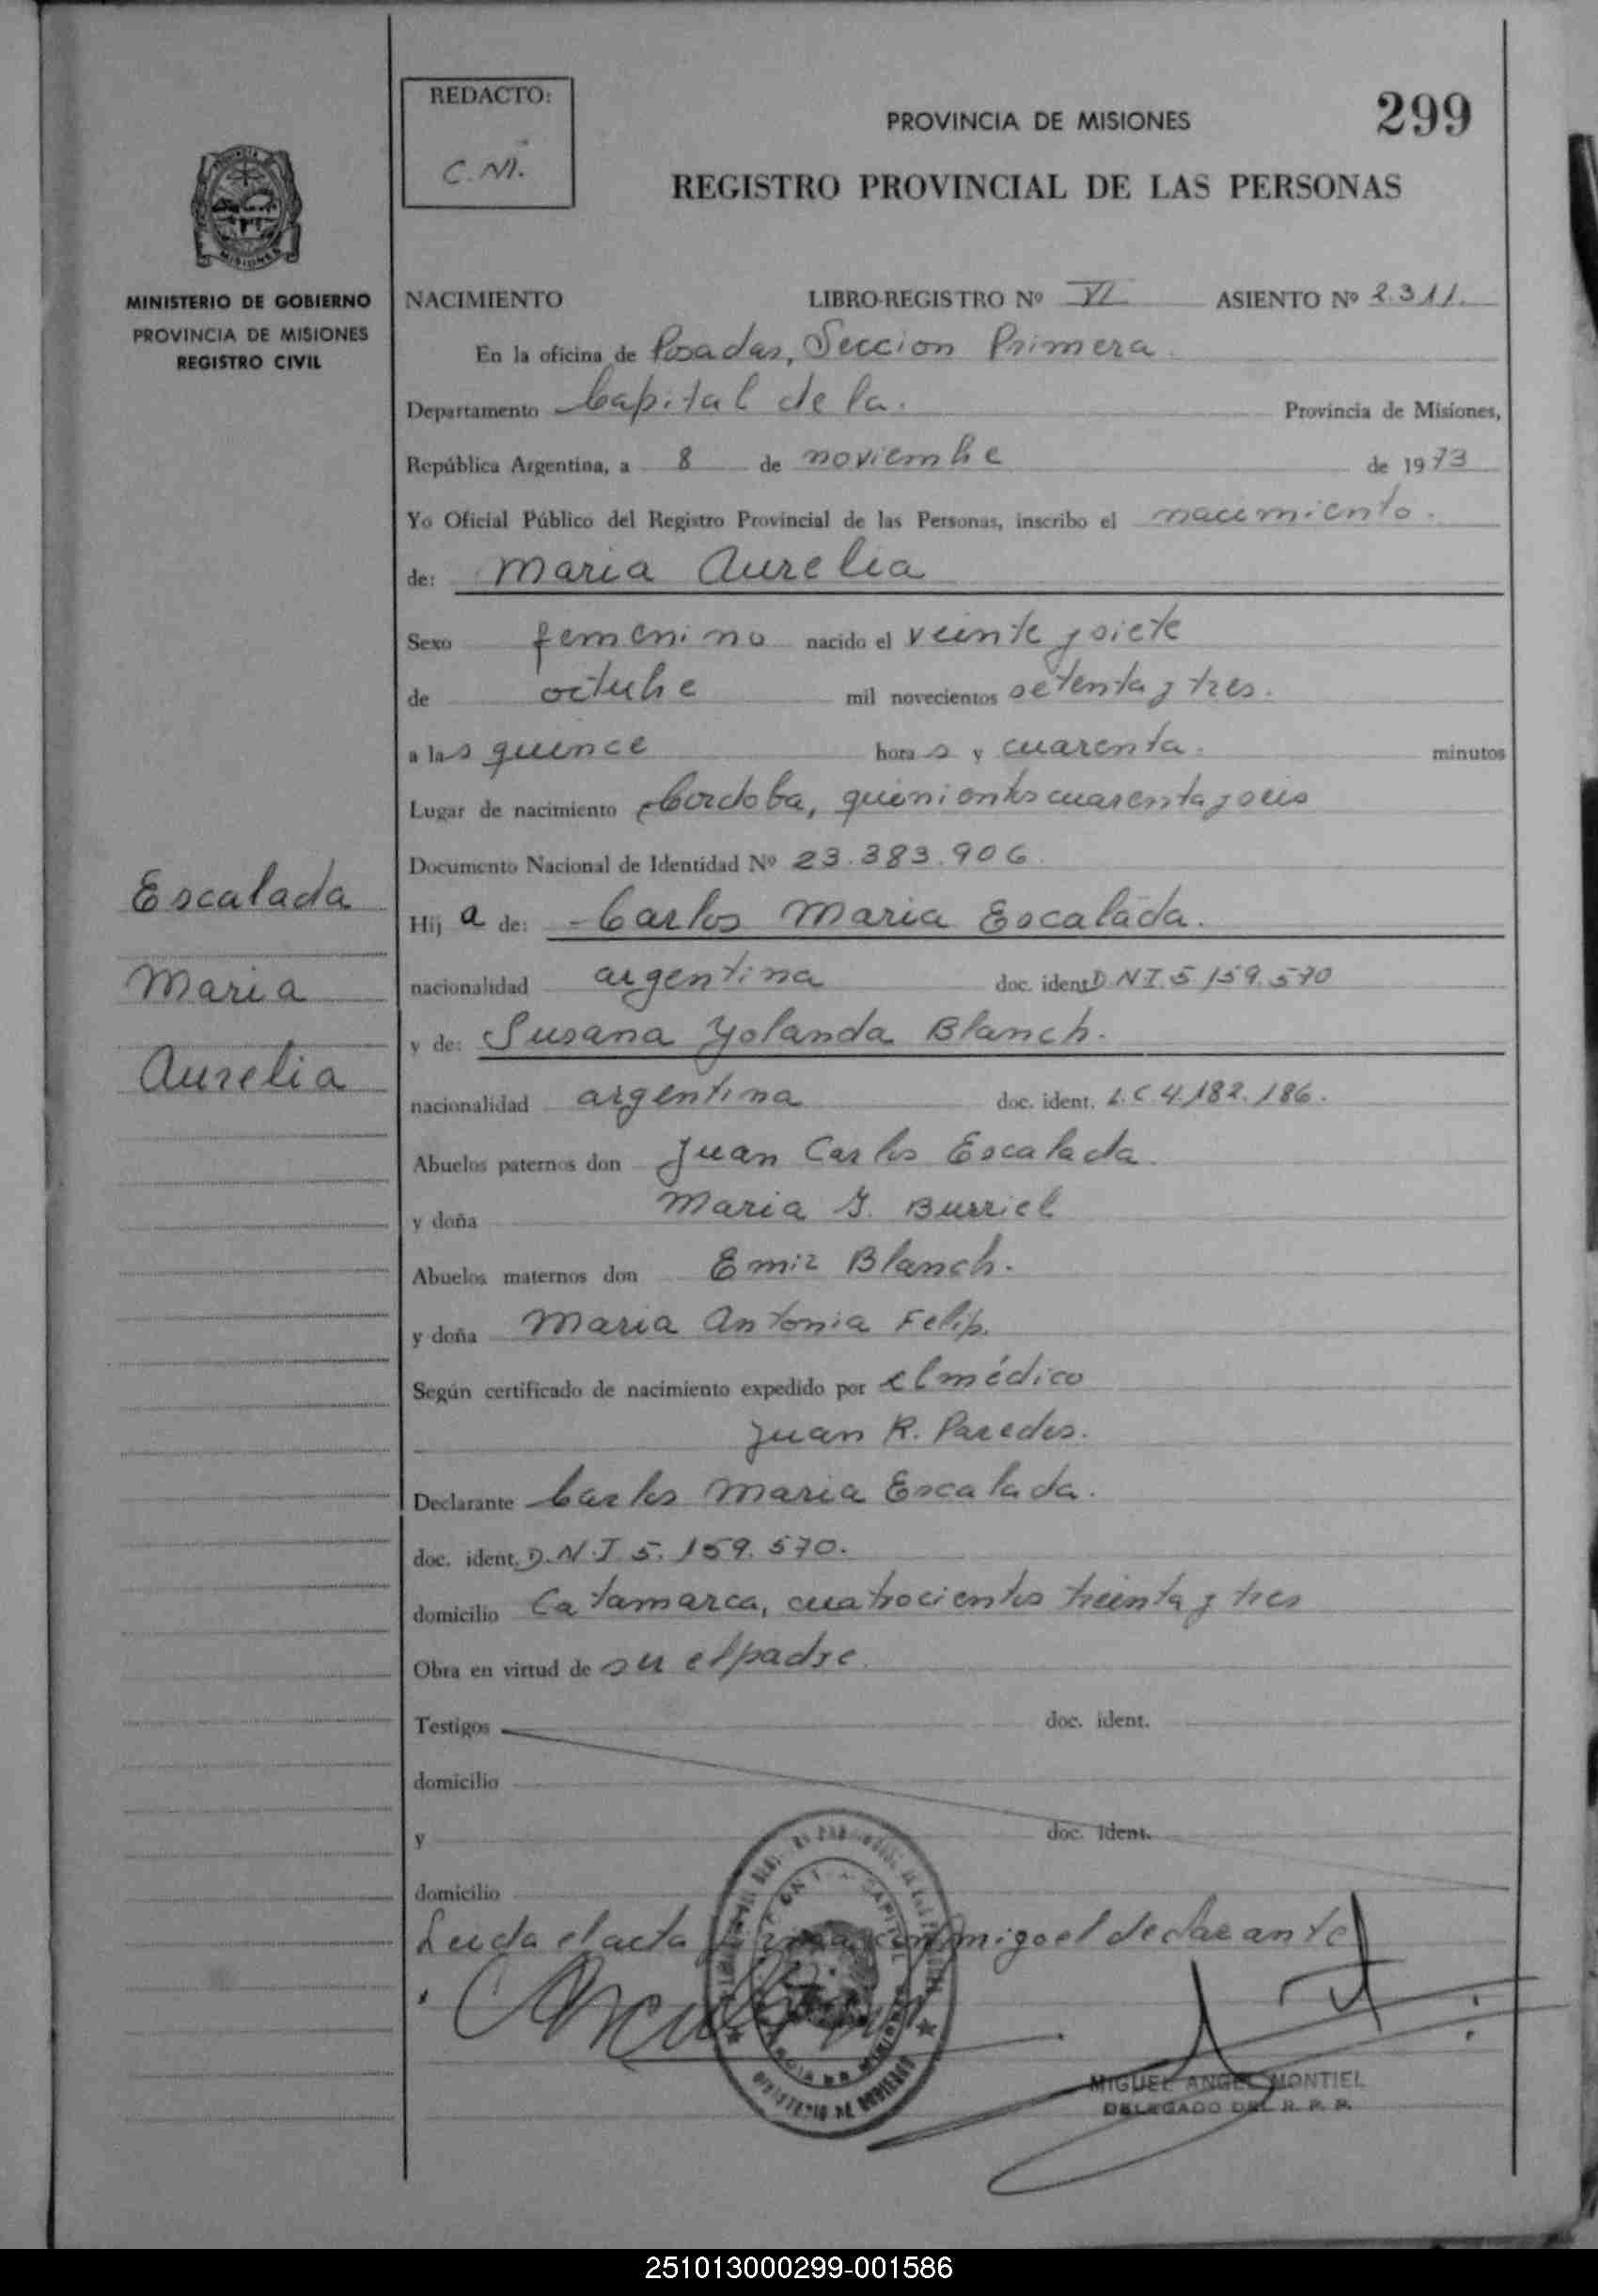 REDACTO:
C.M.
PROVINCIA DE MISIONES
299
REGISTRO PROVINCIAL DE LAS PERSONAS
MISIONES
MINISTERIO DE GOBIERNO
PROVINCIA DE MISIONES
REGISTRO CIVIL
NACIMIENTO LIBRO-REGISTRO Nº VI ASIENTO Nº 2.311.
En la oficina de Posadas, Seccion Primera.
Departamento Capital de la. Provincia de Misiones,
República Argentina, a 8 de noviembre de 1973
Yo Oficial Público del Registro Provincial de las Personas, inscribo el nacimiento.
de: Maria Aurelia
Sexo femenino nacido el veinte y siete
de octubre mil novecientos setenta y tres.
a las quince horas y cuarenta. minutos
Lugar de nacimiento Cordoba, quinientos cuarenta y seis
Documento Nacional de Identidad Nº 23.383.906.
Escalada
Maria
Aurelia
Hija de: Carlos Maria Escalada.
nacionalidad argentina doc. ident. D.N.I. 5.159.570
y de: Susana Yolanda Blanch.
nacionalidad argentina doc. ident. L.C. 4.182.186.
Abuelos paternos don Juan Carlos Escalada.
y doña Maria J. Burriel
Abuelos maternos don Emir Blanch.
y doña Maria Antonia Felip.
Según certificado de nacimiento expedido por el médico
Juan R. Paredes.
Declarante Carlos Maria Escalada.
doc. ident. D.N.I 5.159.570.
domicilio Catamarca, cuatrocientos treinta y tres
Obra en virtud de su el padre.
Testigos doc. ident.
domicilio
y doc. ident.
domicilio
Leida el acta firma conmigo el declarante
MIGUEL ANGEL MONTIEL
DELEGADO DEL R. P. P.
MINISTERIO DE GOBIERNO
251013000299-001586